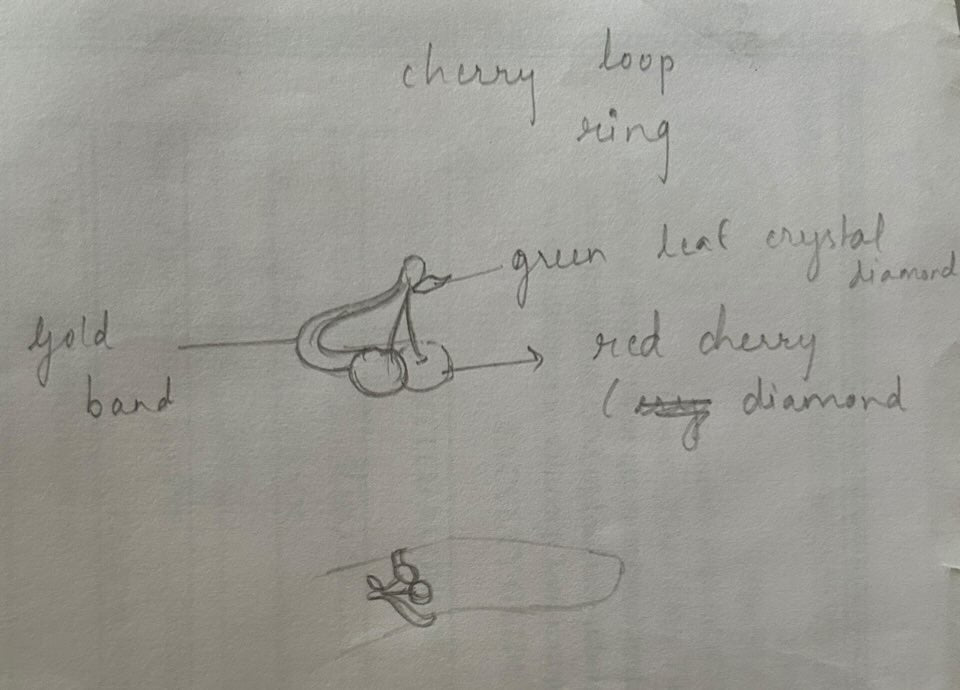 cherry loop
ring
green leaf crystal
diamond
gold
band
red cherry
( diamond